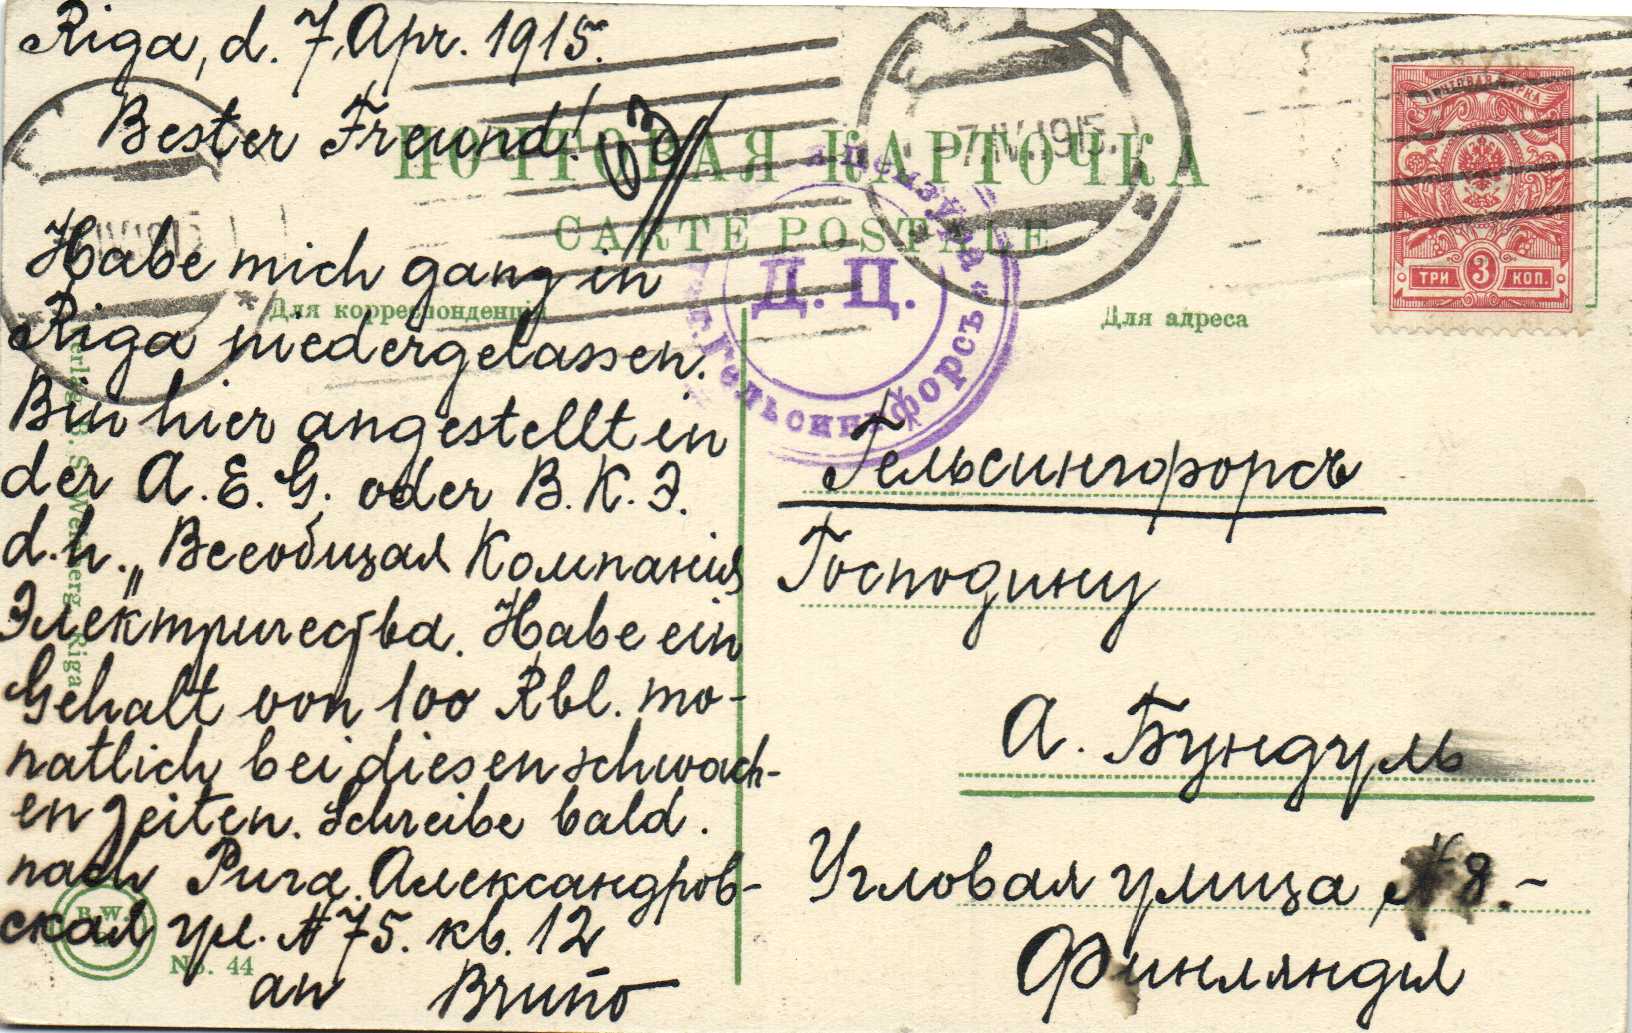 Riga, d. 7. Apr. 1915.
Bester Freund!
ПОЧТОВАЯ КАРТОЧКА
CARTE POSTALE
Для корреспонденціи
Для адреса
7.IV.1915
ПОЧТОВАЯ МАРКА
ТРИ 3 КОП.
Д. Ц.
г. Гельсингфорсъ
Habe mich ganz in
Riga niedergelassen.
Bin hier angestellt in
der A. E. G. oder В. К. Э.
d. h. „Всеобщая Компанія
Электричества. Habe ein
Gehalt von 100 Rbl. mo-
natlich bei diesen schwach-
en Zeiten. Schreibe bald.
nach Рига. Александров-
ская ул. № 75. кв. 12
an Bruno
Гельсингфорсъ
Господину
А. Бундуль
Угловая улица № 8.-
Финляндія
S. Weinberg, Riga
B.W.
No. 44